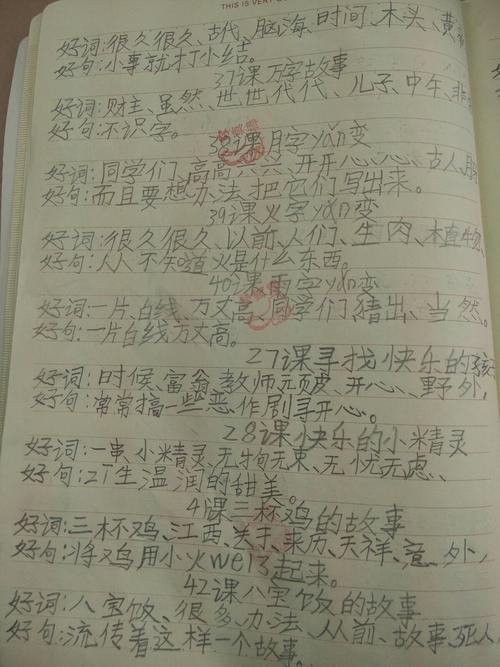 THIS IS VERY
好词:很久很久、古代、脑海、时间、木头、黄
好句:小事就打小结。
37课万字故事
好词:财主、虽然、世世代代、儿子、中午、非
好句:不识字。
38课月字yǎn变
好词:同学们、高高兴兴、开开心心、古人、
好句:而且要想办法把它们写出来。
39课火字yǎn变
好词:很久很久、以前、人们、生肉、植物、
好句:人人不知道火是什么东西。
40课雨字yǎn变
好词:一片、白线、万丈高、同学们、猜出、当然。
好句:一片白线万丈高。
27课寻找快乐的孩
好词:时候、富翁、教师、顽皮、开心、野外,
好句:常常搞一些恶作剧寻开心。
28课快乐的小精灵
好词:一串、小精灵、无拘无束、无忧无虑、
好句:生温润的甜美。
41课三杯鸡的故事
好词:三杯鸡、江西、关于、来历、天祥、意外,
好句:将鸡用小火wei起来。
42课八宝饭的故事
好词:八宝饭、很多、办法、从前、故事、死人
好句:流传着这样一个故事。